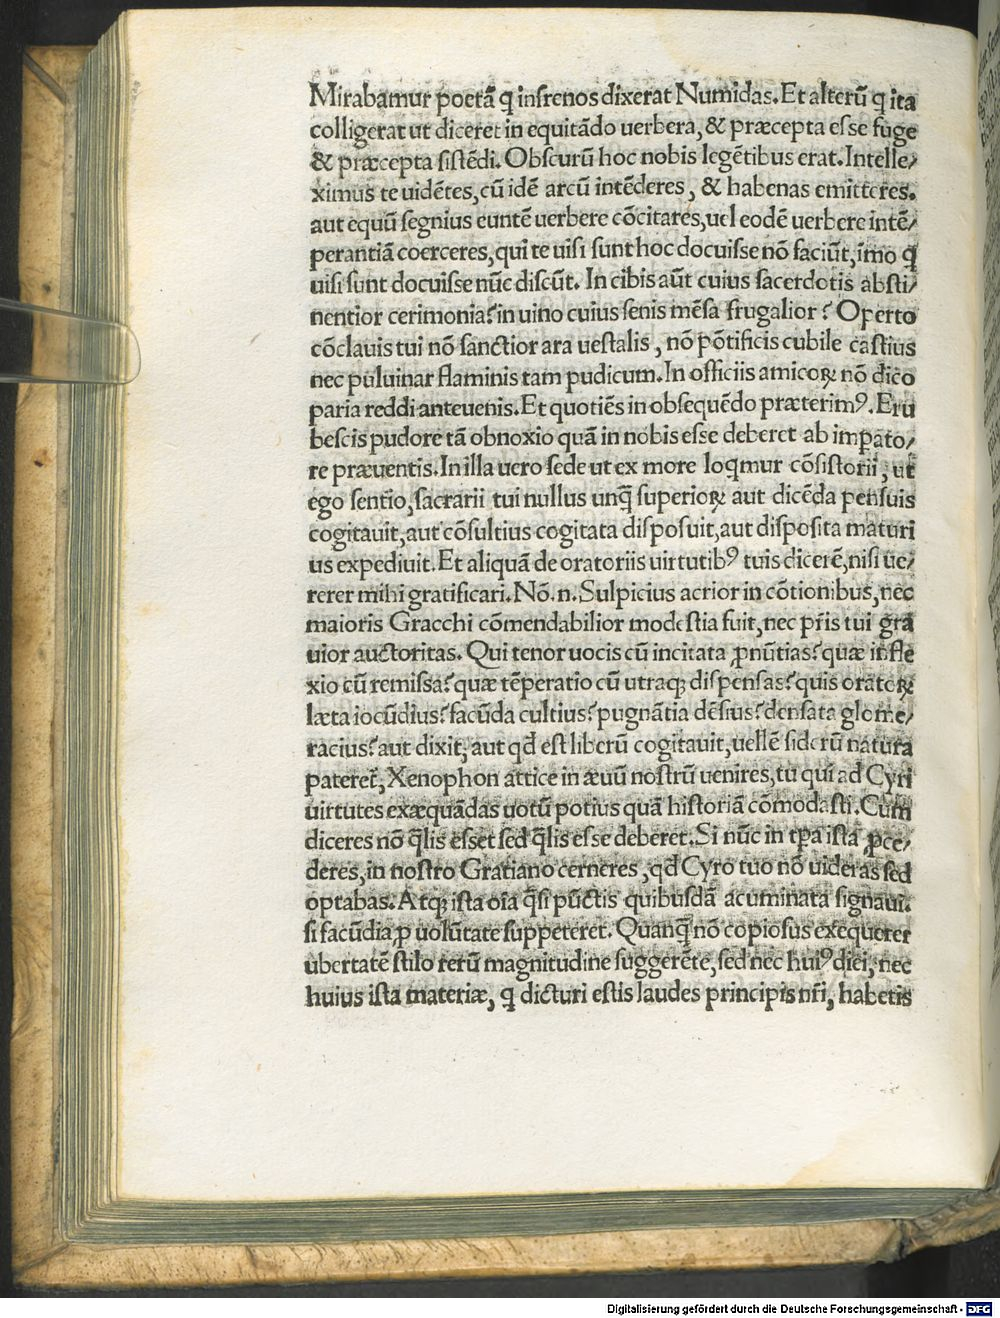 Mirabamur poetā q̄ infrenos dixerat Numidas. Et alterū q̄ ita
colligerat ut diceret in equitādo uerbera, & præcepta esse fugę
& præcepta sistēdi. Obscurū hoc nobis legētibus erat. Intelle⸗
ximus te uidētes, cū idē arcū intēderes, & habenas emitteres.
aut equū segnius euntē uerbere cōcitares, uel eodē uerbere intē⸗
perantiā coerceres, qui te uisi sunt hoc docuisse nō faciūt, imo q̄
uisi sunt docuisse nūc discūt. In cibis aūt cuius sacerdotis absti⸗
nentior cerimonia? in uino cuius senis mēsa frugalior? Operto
cōclauis tui nō sanctior ara uestalis, nō pōtificis cubile castius
nec puluinar flaminis tam pudicum. In officiis amicoꝝ nō dico
paria reddi anteuenis. Et quotiēs in obsequēdo præterimꝰ. Eru
bescis pudore tā obnoxio quā in nobis esse deberet ab imperato⸗
re præuentis. In illa uero sede ut ex more loqmur cōsistorii, ut
ego sentio, sacrarii tui nullus unq̄ superioꝝ aut dicēda pensuis
cogitauit, aut cōsultius cogitata disposuit, aut disposita maturi
us expediuit. Et aliquā de oratoriis uirtutibꝰ tuis dicerē, nisi ue⸗
rerer mihi gratificari. Nō. n. Sulpicius acrior in cōtionibus, nec
maioris Gracchi cōmendabilior modestia fuit, nec pr̄is tui gra
uior auctoritas. Qui tenor uocis cū incitata ꝓnūtias? quæ infle
xio cū remissa? quæ tēperatio cū utraqꝫ dispensas? quis oratoꝝ
læta iocūdius? facūda cultius? pugnātia dēsius? densata glome⸗
racius? aut dixit, aut qd̄ est liberū cogitauit, uellē si derū natura
pateret̄, Xenophon attice in æuū nostrū uenires, tu qui ad Cyri
uirtutes exæquādas uotū potius quā historiā cōmodasti. Cum
diceres nō q̄lis esset sed q̄lis esse deberet. Si nūc in tp̄a ista ꝓce⸗
deres, in nostro Gratiano cerneres, qd̄ Cyro tuo nō uideras sed
optabas. Atqꝫ ista oīa q̄si pūctis quibusdā acuminata signaui.
si facūdia ꝓ uolūtate suppeteret. Quanq̄ nō copiosus exequerer
ubertatē stilo rerū magnitudine suggerēte, sed nec huiꝰ diei, nec
huius ista materiæ, q̄ dicturi estis laudes principis nr̄i, habetis
Digitalisierung gefördert durch die Deutsche Forschungsgemeinschaft - DFG